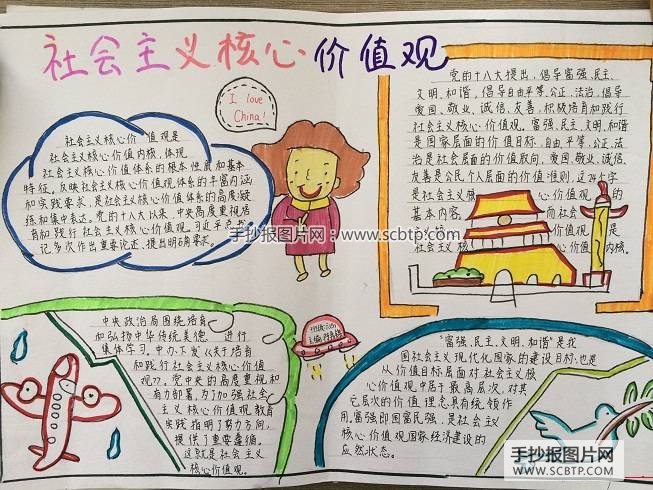 社会主义核心价值观
I love
China!
社会主义核心价值观是
社会主义核心价值内核,体现
社会主义核心价值体系的根本性质和基本
特征,反映社会主义核心价值观体系的丰富内涵
和实践要求,是社会主义核心价值体系的高度凝
练和集中表达。党的十八大以来,中央高度重视培
育和践行社会主义核心价值观。习近平总书
记多次作出重要论述、提出明确要求。
党的十八大提出,倡导富强、民主、
文明、和谐,倡导自由、平等、公正、法治,倡导
爱国、敬业、诚信、友善,积极培育和践行
社会主义核心价值观。富强、民主、文明、和谐
是国家层面的价值目标,自由、平等、公正、法
治是社会层面的价值取向,爱国、敬业、诚信、
友善是公民个人层面的价值准则,这24个字
是社会主义核心价值观的
基本内容。而社会
是
社会主义核 内核。
手抄报图片网:www.scbtp.com
中央政治局围绕培育
和弘扬中华传统美德 进行
集体学习,中办下发《关于培育
和践行社会主义核心价值
观》。党中央的高度重视和
有力部署,为加强社会
主义核心价值观教育
实践指明了努力方向,
提供了重要遵循。
这就是社会主义
核心价值观。
"富强、民主、文明、和谐"是我
国社会主义现代化国家的建设目标,也是
从价值目标层面对社会主义核
心价值观中居于最高层次,对其
它层次的价值理念具有统领作
用。富强即国富民强,是社会主义
核心价值观国家经济建设的
应然状态。
手抄报图片网
WWW.SCBTP.COM